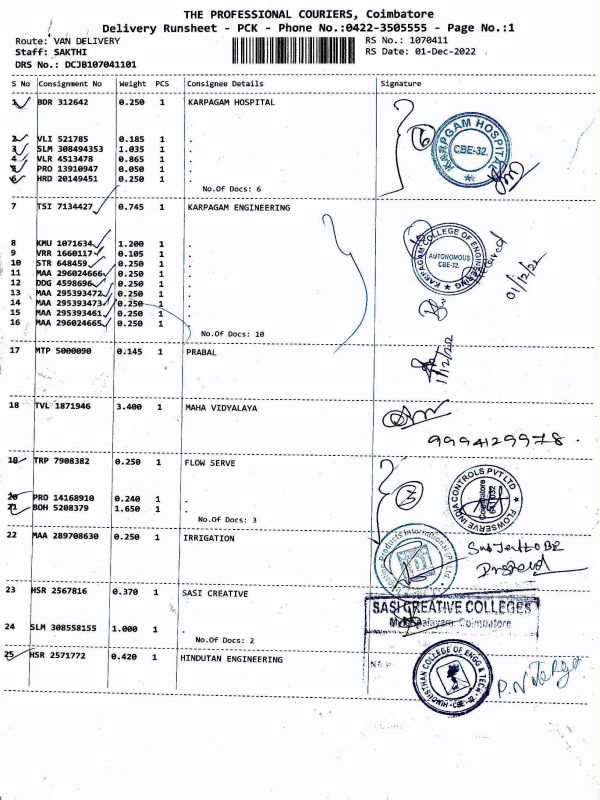 THE PROFESSIONAL COURIERS, Coimbatore
Delivery Runsheet - PCK - Phone No.:0422-3505555 - Page No.:1
Route: VAN DELIVERY RS No.: 1070411
Staff: SAKTHI RS Date: 01-Dec-2022
DRS No.: DCJB107041101
S No Consignment No Weight PCS Consignee Details Signature
1 BDR 312642 0.250 1 KARPAGAM HOSPITAL
2 VLI 521785 0.185 1 .
3 SLM 308494353 1.035 1 .
4 VLR 4513478 0.865 1 .
5 PRO 13910947 0.050 1 .
6 HRD 20149451 0.250 1 .
No.Of Docs: 6
6
KARPAGAM HOSPITAL
CBE-32.
7 TSI 7134427 0.745 1 KARPAGAM ENGINEERING
8 KMU 1071634 1.200 1 .
9 VRR 1660117 0.105 1 .
10 STR 648459 0.250 1 .
11 MAA 296024666 0.250 1 .
12 DDG 4598696 0.250 1 .
13 MAA 295393472 0.250 1 .
14 MAA 295393473 0.250 1 .
15 MAA 295393461 0.250 1 .
16 MAA 296024665 0.250 1 .
No.Of Docs: 10
KARPAGAM COLLEGE OF ENGINEERING
AUTONOMOUS
CBE-32.
01/12/22
17 MTP 5000090 0.145 1 PRABAL
1/12/22
18 TVL 1871946 3.400 1 MAHA VIDYALAYA
9994129978.
19 TRP 7908382 0.250 1 FLOW SERVE
20 PRO 14168910 0.240 1 .
21 BOH 5208379 1.650 1 .
No.Of Docs: 3
3
FLOWSERVE INDIA CONTROLS PVT LTD
Coimbatore
641 032
22 MAA 289708630 0.250 1 IRRIGATION
Products International (P) Ltd
23 HSR 2567816 0.370 1 SASI CREATIVE
24 SLM 308558155 1.000 1 .
No.Of Docs: 2
SASI CREATIVE COLLEGES
Coimbatore
25 HSR 2571772 0.420 1 HINDUTAN ENGINEERING
HINDUSTHAN COLLEGE OF ENGG & TECH
CBE-32